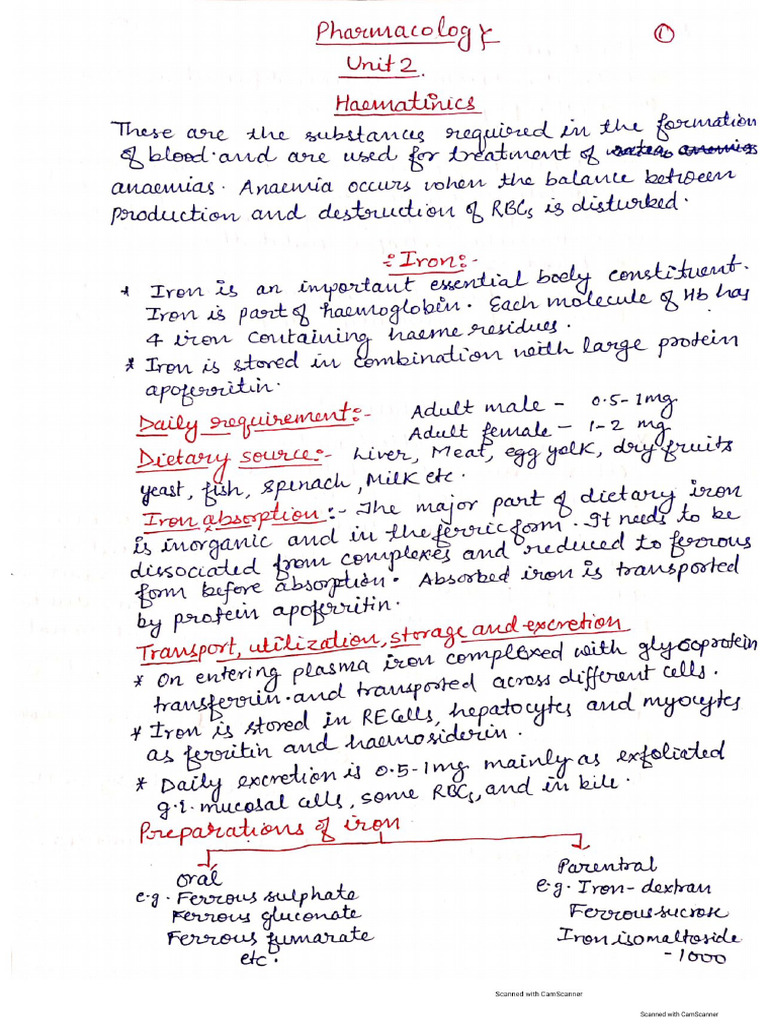 Pharmacology
1
Unit 2.
Haematinics
These are the substances required in the formation
of blood and are used for treatment of
anaemias. Anaemia occurs when the balance between
production and destruction of RBCs is disturbed.
:Iron:-
* Iron is an important essential body constituent.
Iron is part of haemoglobin. Each molecule of Hb has
4 iron containing haeme residues.
* Iron is stored in combination with large protein
apoferritin.
Daily requirement:- Adult male - 0.5-1mg
Adult female - 1-2 mg
Dietary source:- Liver, Meat, egg yolk, dry fruits
yeast, fish, spinach, Milk etc.
Iron absorption:- The major part of dietary iron
is inorganic and in the ferric form. It needs to be
dissociated from complexes and reduced to ferrous
form before absorption. Absorbed iron is transported
by protein apoferritin.
Transport, utilization, storage and excretion
* On entering plasma iron complexed with glycoprotein
transferrin and transported across different cells.
* Iron is stored in RE Cells, hepatocytes and myocytes
as ferritin and haemosiderin.
* Daily excretion is 0.5-1mg mainly as exfoliated
g.I. mucosal cells, some RBCs, and in bile.
Preparations of iron
Oral
e.g. Ferrous sulphate
Ferrous gluconate
Ferrous fumarate
etc.
Parentral
e.g. Iron-dextran
Ferrous-sucrose
Iron isomaltoside
-1000
Scanned with CamScanner
Scanned with CamScanner